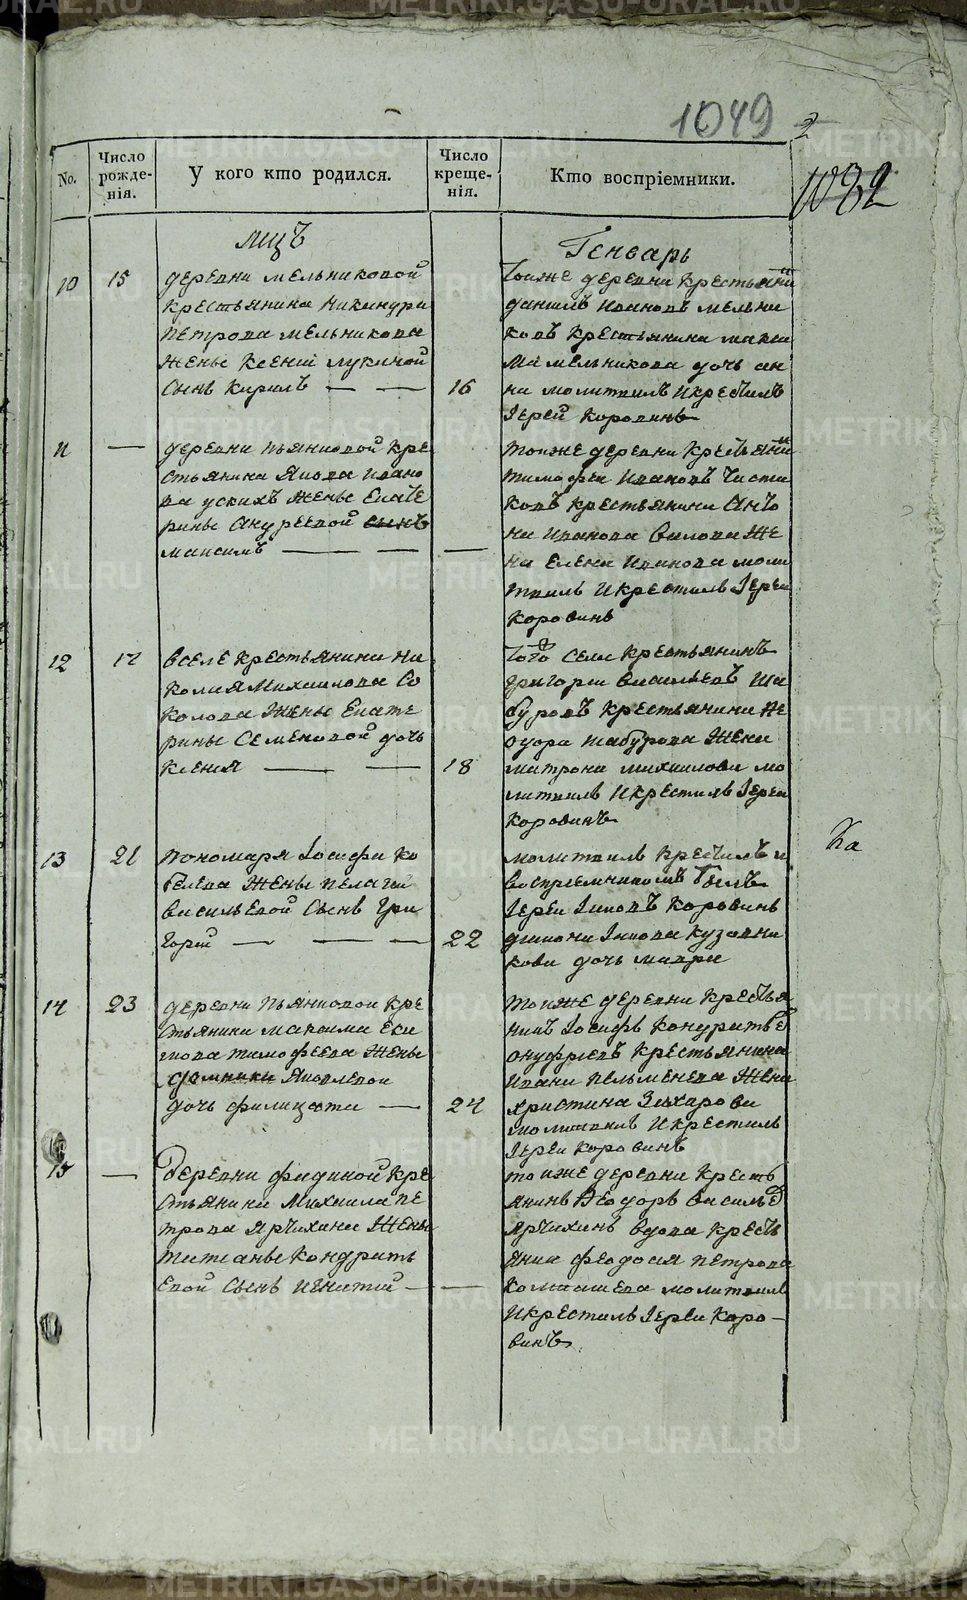 1049 2
1032
No.
Число рожденія.
У кого кто родился.
Число крещенія.
Кто воспріемники.
мцъ
Генварь
10 15
деревни мельниковой
крестьянина никанура
петрова мельникова
жены ксеніи лукиной
сынъ кирилъ — — 16
тоиже деревни крестьянинъ
данилъ ивановъ мельни
ковъ крестьянина
мельникова дочь ан
на молитвилъ икрестилъ
Іерей коровинъ
11 —
деревни пьянковой кре
стьянина Якова ивано
ва ускихъ жены Екате
рины сынъ
максимъ — — —
тоиже деревни крестьянинъ
тимофеи ивановъ чисти
ковъ крестьянина
ивановa вилова же
на елена иванова моли
твилъ икрестилъ Іереи
коровинъ
12 17
вселе крестьянина ни
колая михаилова со
колова жены Екате
рины семеновой дочь
ксения — — 18
того села крестьянинъ
григореи васильевъ ша
буровъ крестьянина фе
одора шабурова жена
матрона михаилова мо
литвилъ икрестилъ Іереи
коровинъ
13 21
пономаря Іосифа ко
белева жены пелагеи
васильевой сынъ гри
горий — — — 22
молитвилъ крестилъ и
воспріемникомъ былъ
Іереи Іаковъ коровинъ
диакона Іакова кузовни
кова дочь мавра
Ка
14 23
деревни пьянковои кре
стьянина максима еки
мова тимофеева жены
домники яковлевои
дочь филицата — 24
тоиже деревни крестья
нинъ Іосифъ кондратье
онуфриевъ крестьянина
ивана пельменева жена
христина захарова
молитвилъ икрестилъ
Іереи коровинъ
15 —
деревни фадиной кре
стьянина михаила пе
трова ярчихина жены
татианы кондрать
евой сынъ игнатий — —
тоиже деревни кресть
янинъ Ѳеодоръ василье
ярчихинъ вдова кресть
янка феодосия петрова
комашева молитвилъ
икрестилъ Іереи коро-
винъ
METRIKI.GASO-URAL.RU